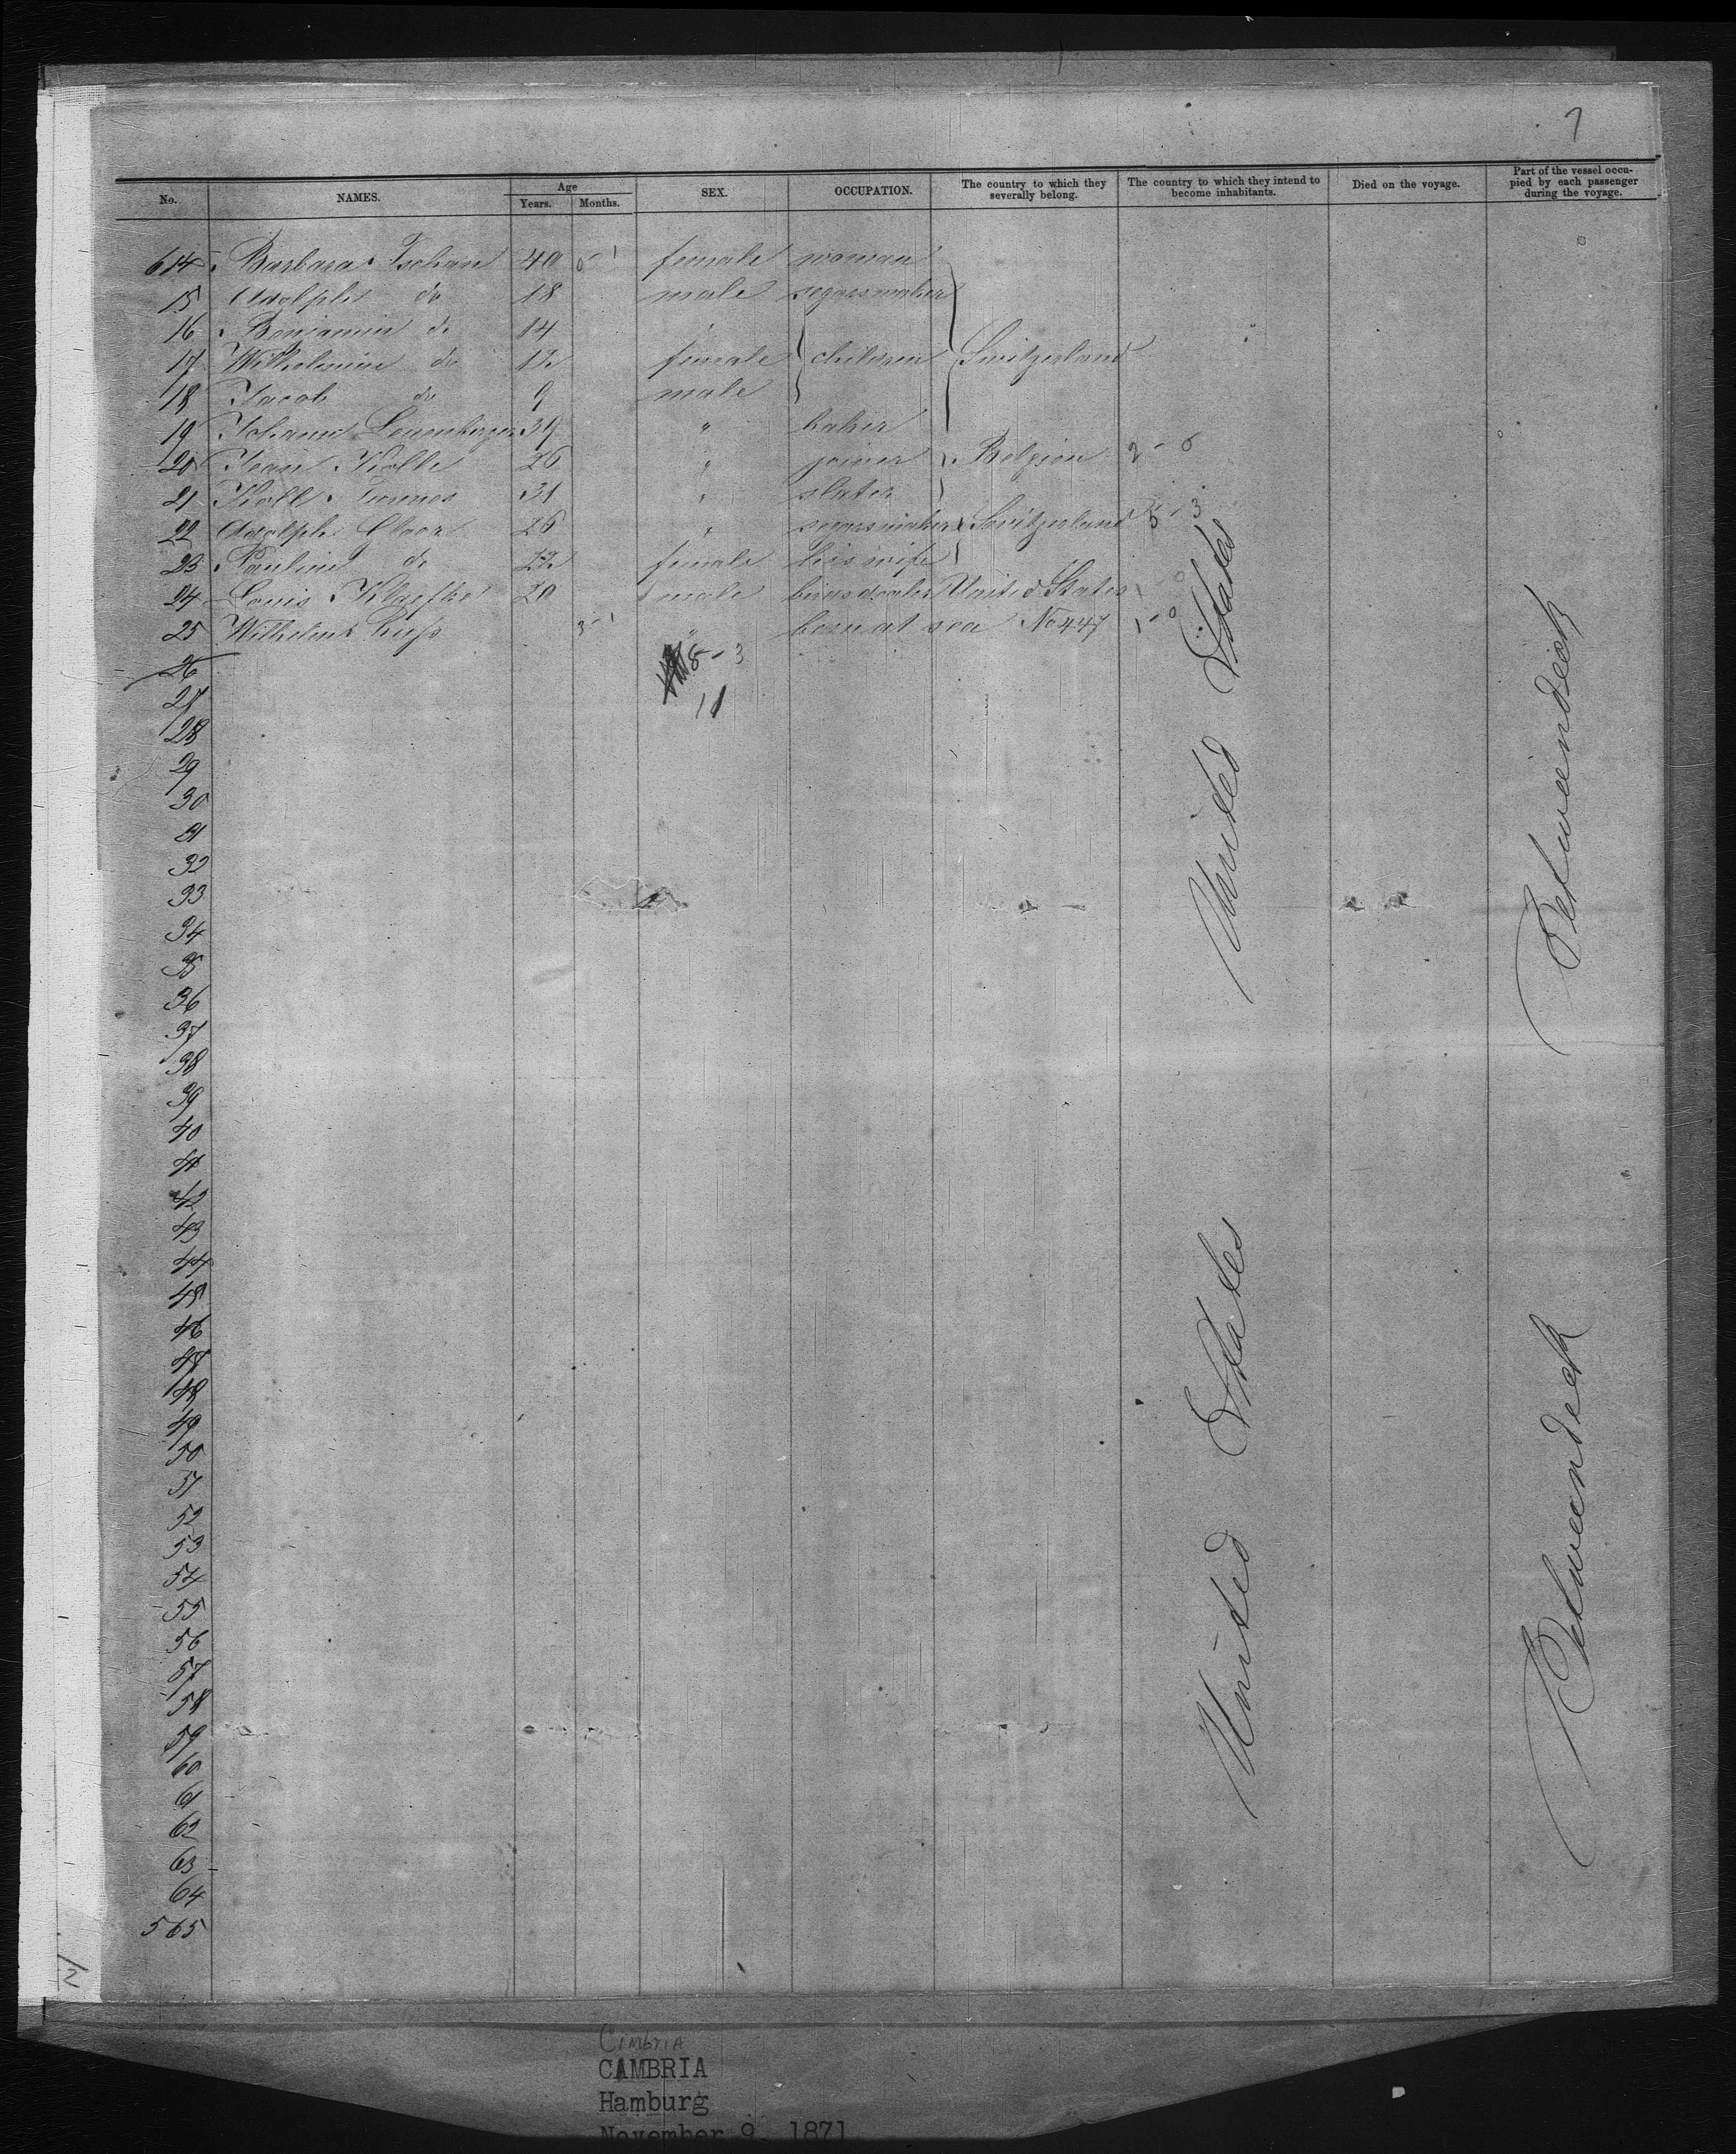 7
No. NAMES. Age Years. Months. SEX. OCCUPATION. The country to which they severally belong. The country to which they intend to become inhabitants. Died on the voyage. Part of the vessel occupied by each passenger during the voyage.
614 Barbara Tschan 40 0-1 female woman
15 Adolph do 18 male segarsmaker
16 Benjamin do 14 "
17 Wilhelmine do 12 female children Switzerland
18 Jacob do 9 male
19 Johann Leuenberger 39 " baker
20 Jean Kolle 26 " joiner Belgion 2-0
21 31 " slater
22 Adolph 26 " segarsmaker Switzerland 5-3
23 Pauline do 22 female his wife
24 Louis 20 male United States 1-0
25 Wilhelm 3-1 " born at sea No 447 1-0
26 8-3
27 11
28
29
30
31
32
33
34
35
36
37
38
39
40
41
42
43
44
45
46
47
48
49
50
51
52
53
54
55
56
57
58
59
60
61
62
63
64
565
United States
United States
Betweendeck
Betweendeck
12
Cimbria
CAMBRIA
Hamburg
November 9, 1871